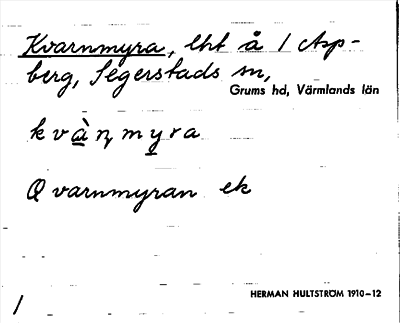 Kvarnmyra, lht å 1 Asp-
berg, Segerstads sn,
Grums hd, Värmlands län
kvàɳmyra
Qvarnmyran ek
HERMAN HULTSTRÖM 1910–12
1